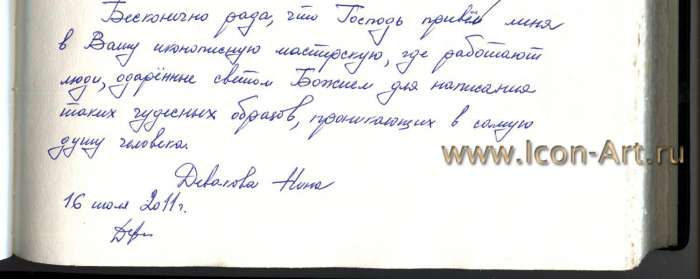 Бесконечно рада, что Господь привёл меня
в Вашу иконописную мастерскую, где работают
люди, одарённые светом Божием для написания
таких чудесных образов, проникающих в самую
душу человека.
www.Icon-Art.ru
Нина
16 июля 2011г.